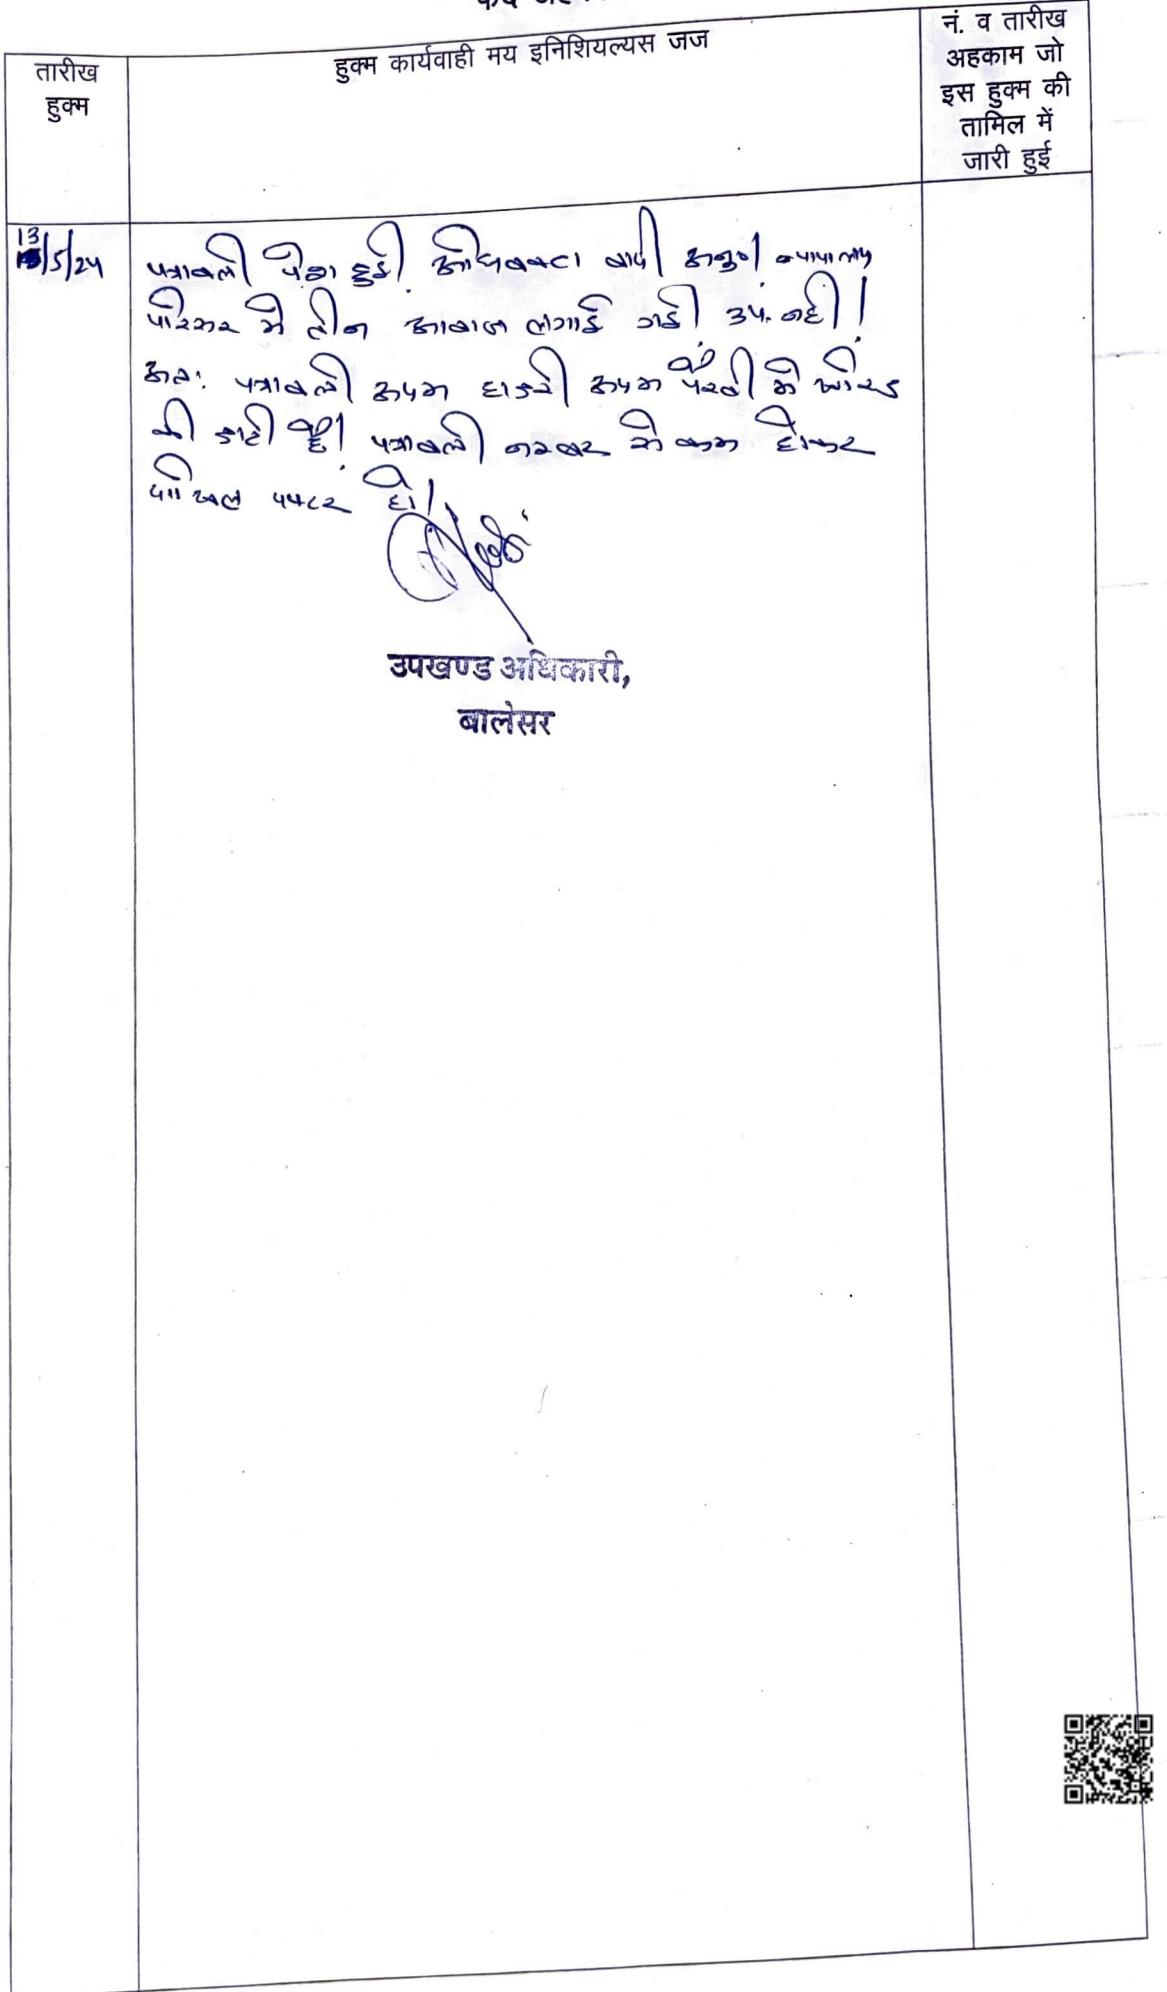 तारीख
हुक्म
हुक्म कार्यवाही मय इनिशियल्यस जज
नं. व तारीख
अहकाम जो
इस हुक्म की
तामिल में
जारी हुई
13/5/24
पत्रावली पेश हुई अधिवक्ता वादी अनु0। न्यायालय
परिसर में तीन आवाज लगाई गई उप. नहीं।
अतः पत्रावली अदम हाजरी अदम पैरवी में खारिज
की जाती है। पत्रावली नम्बर से कम होकर
दाखिल दफ्तर हो।
उपखण्ड अधिकारी,
बालेसर